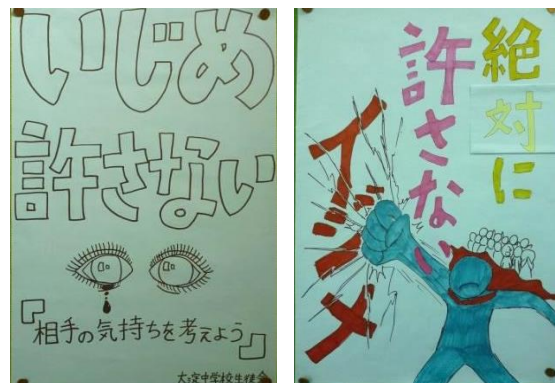 いじめ
許さない
『相手の気持ちを考えよう』
大窪中学校生徒会
絶対に
許さない
イジメ